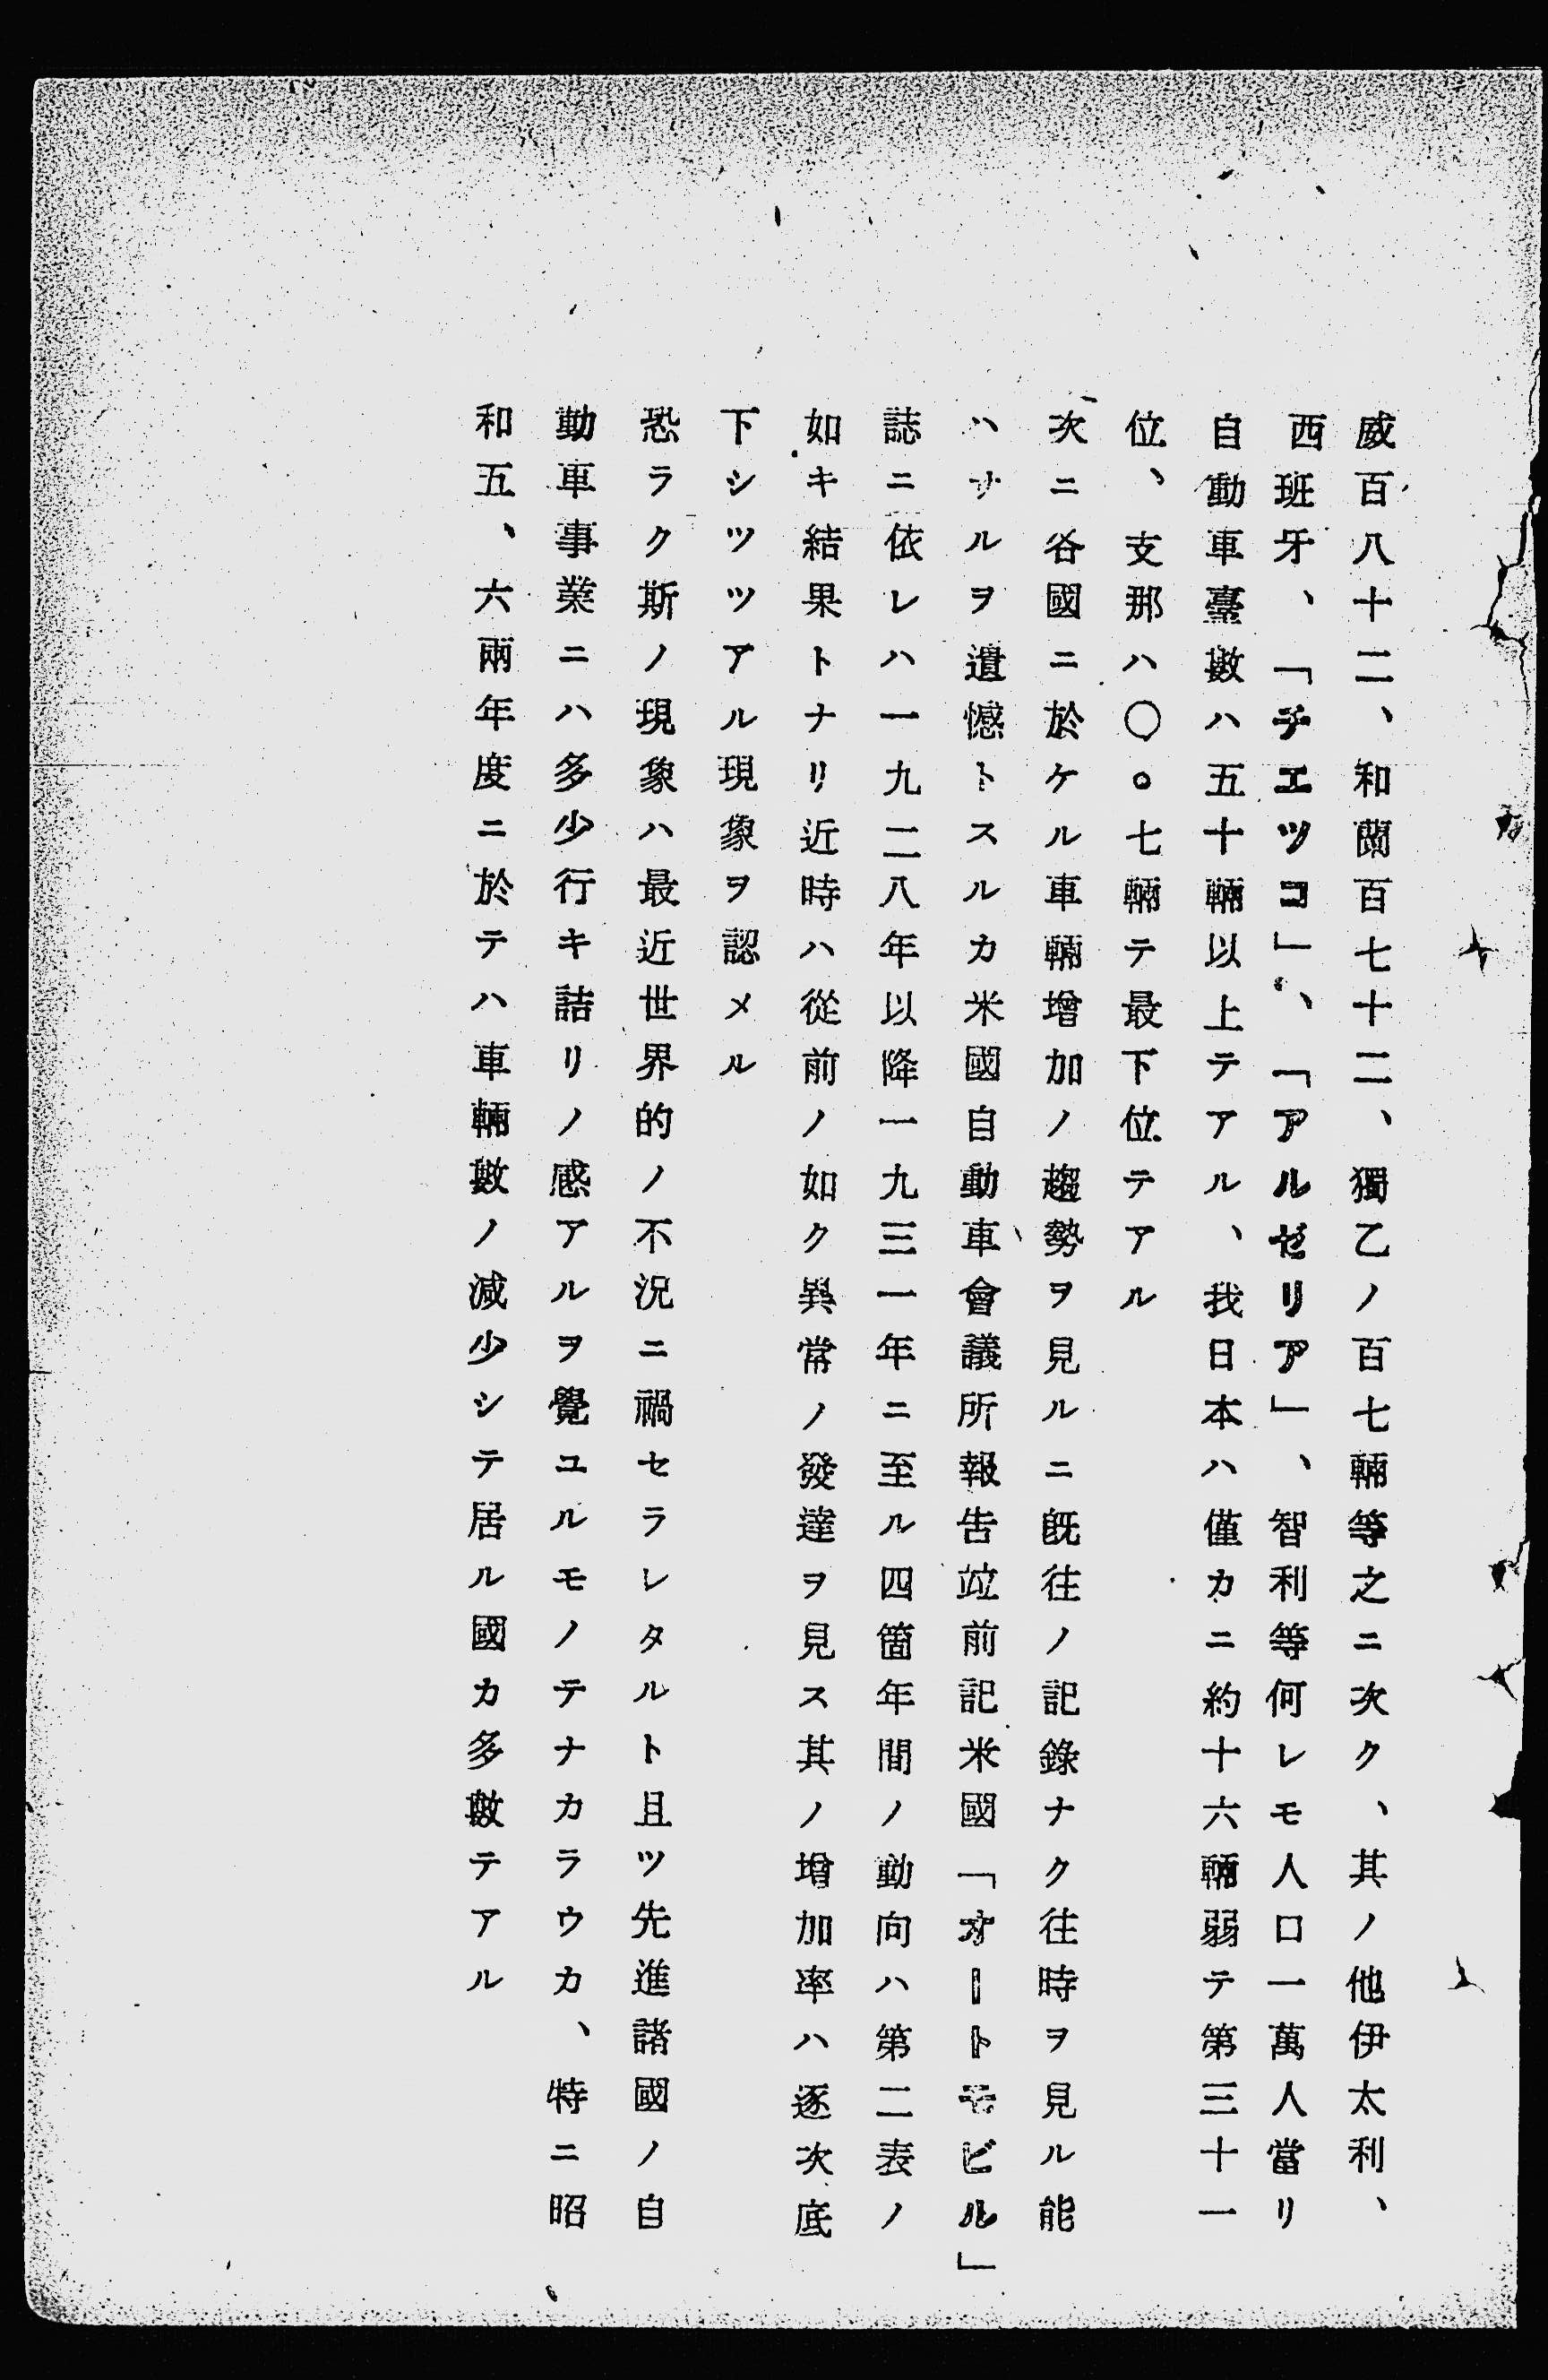 威百八十二、和蘭百七十二、獨乙ノ百七輛等之ニ次ク、其ノ他伊太利、
西班牙、「チエツコ」、「アルゼリア」、智利等何レモ人口一萬人當リ
自動車臺數ハ五十輛以上テアル、我日本ハ僅カニ約十六輛弱テ第三十一
位、支那ハ〇。七輛テ最下位テアル
次ニ各國ニ於ケル車輛增加ノ趨勢ヲ見ルニ既往ノ記錄ナク往時ヲ見ル能
ハサルヲ遺憾トスルカ米國自動車會議所報告竝前記米國「オートモビル」
誌ニ依レハ一九二八年以降一九三一年ニ至ル四箇年間ノ動向ハ第二表ノ
如キ結果トナリ近時ハ從前ノ如ク異常ノ發達ヲ見ス其ノ增加率ハ逐次底
下シツツアル現象ヲ認メル
恐ラク斯ノ現象ハ最近世界的ノ不況ニ禍セラレタルト且ツ先進諸國ノ自
動車事業ニハ多少行キ詰リノ感アルヲ覺ユルモノテナカラウカ、特ニ昭
和五、六兩年度ニ於テハ車輛數ノ減少シテ居ル國カ多數テアル